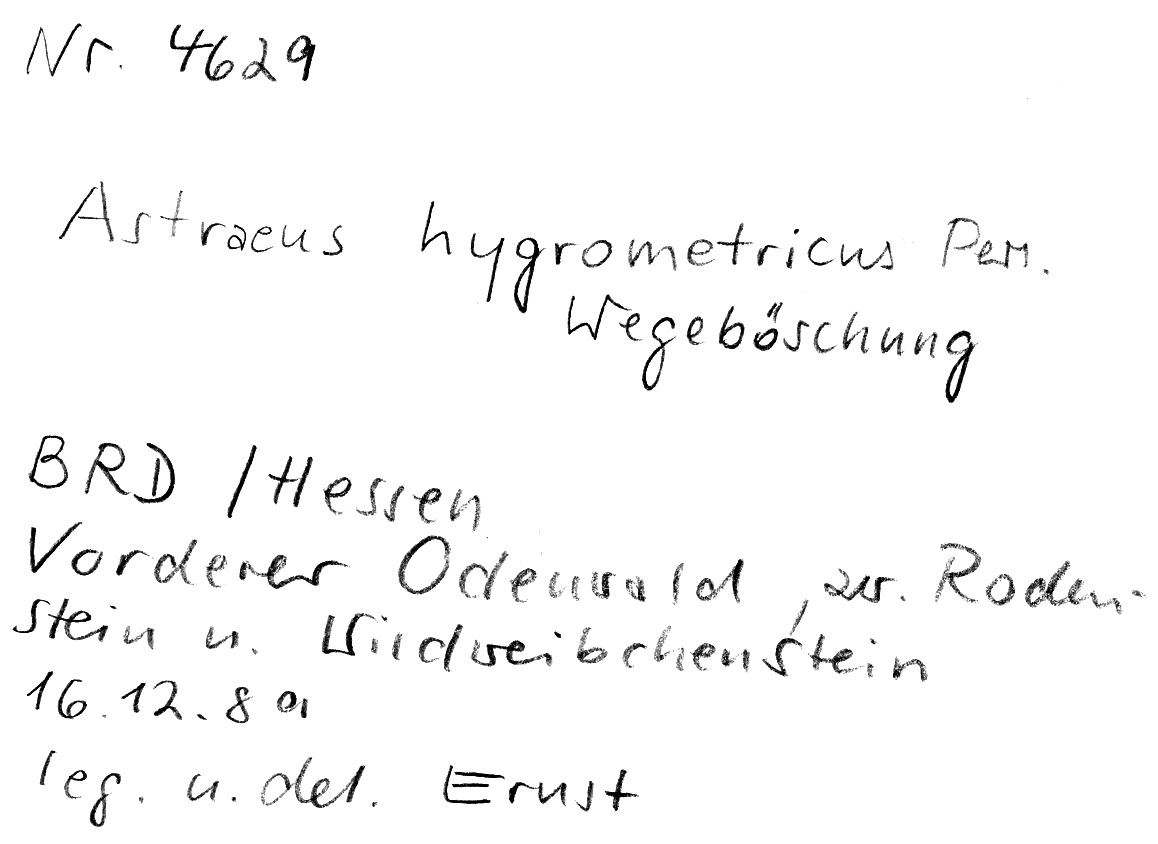 Nr. 4629
Astraeus hygrometricus Pers.
Wegeböschung
BRD / Hessen
Vorderer Odenwald, zw. Roden-
stein u. Wildweibchenstein
16.12.89
leg. u. det. Ernst